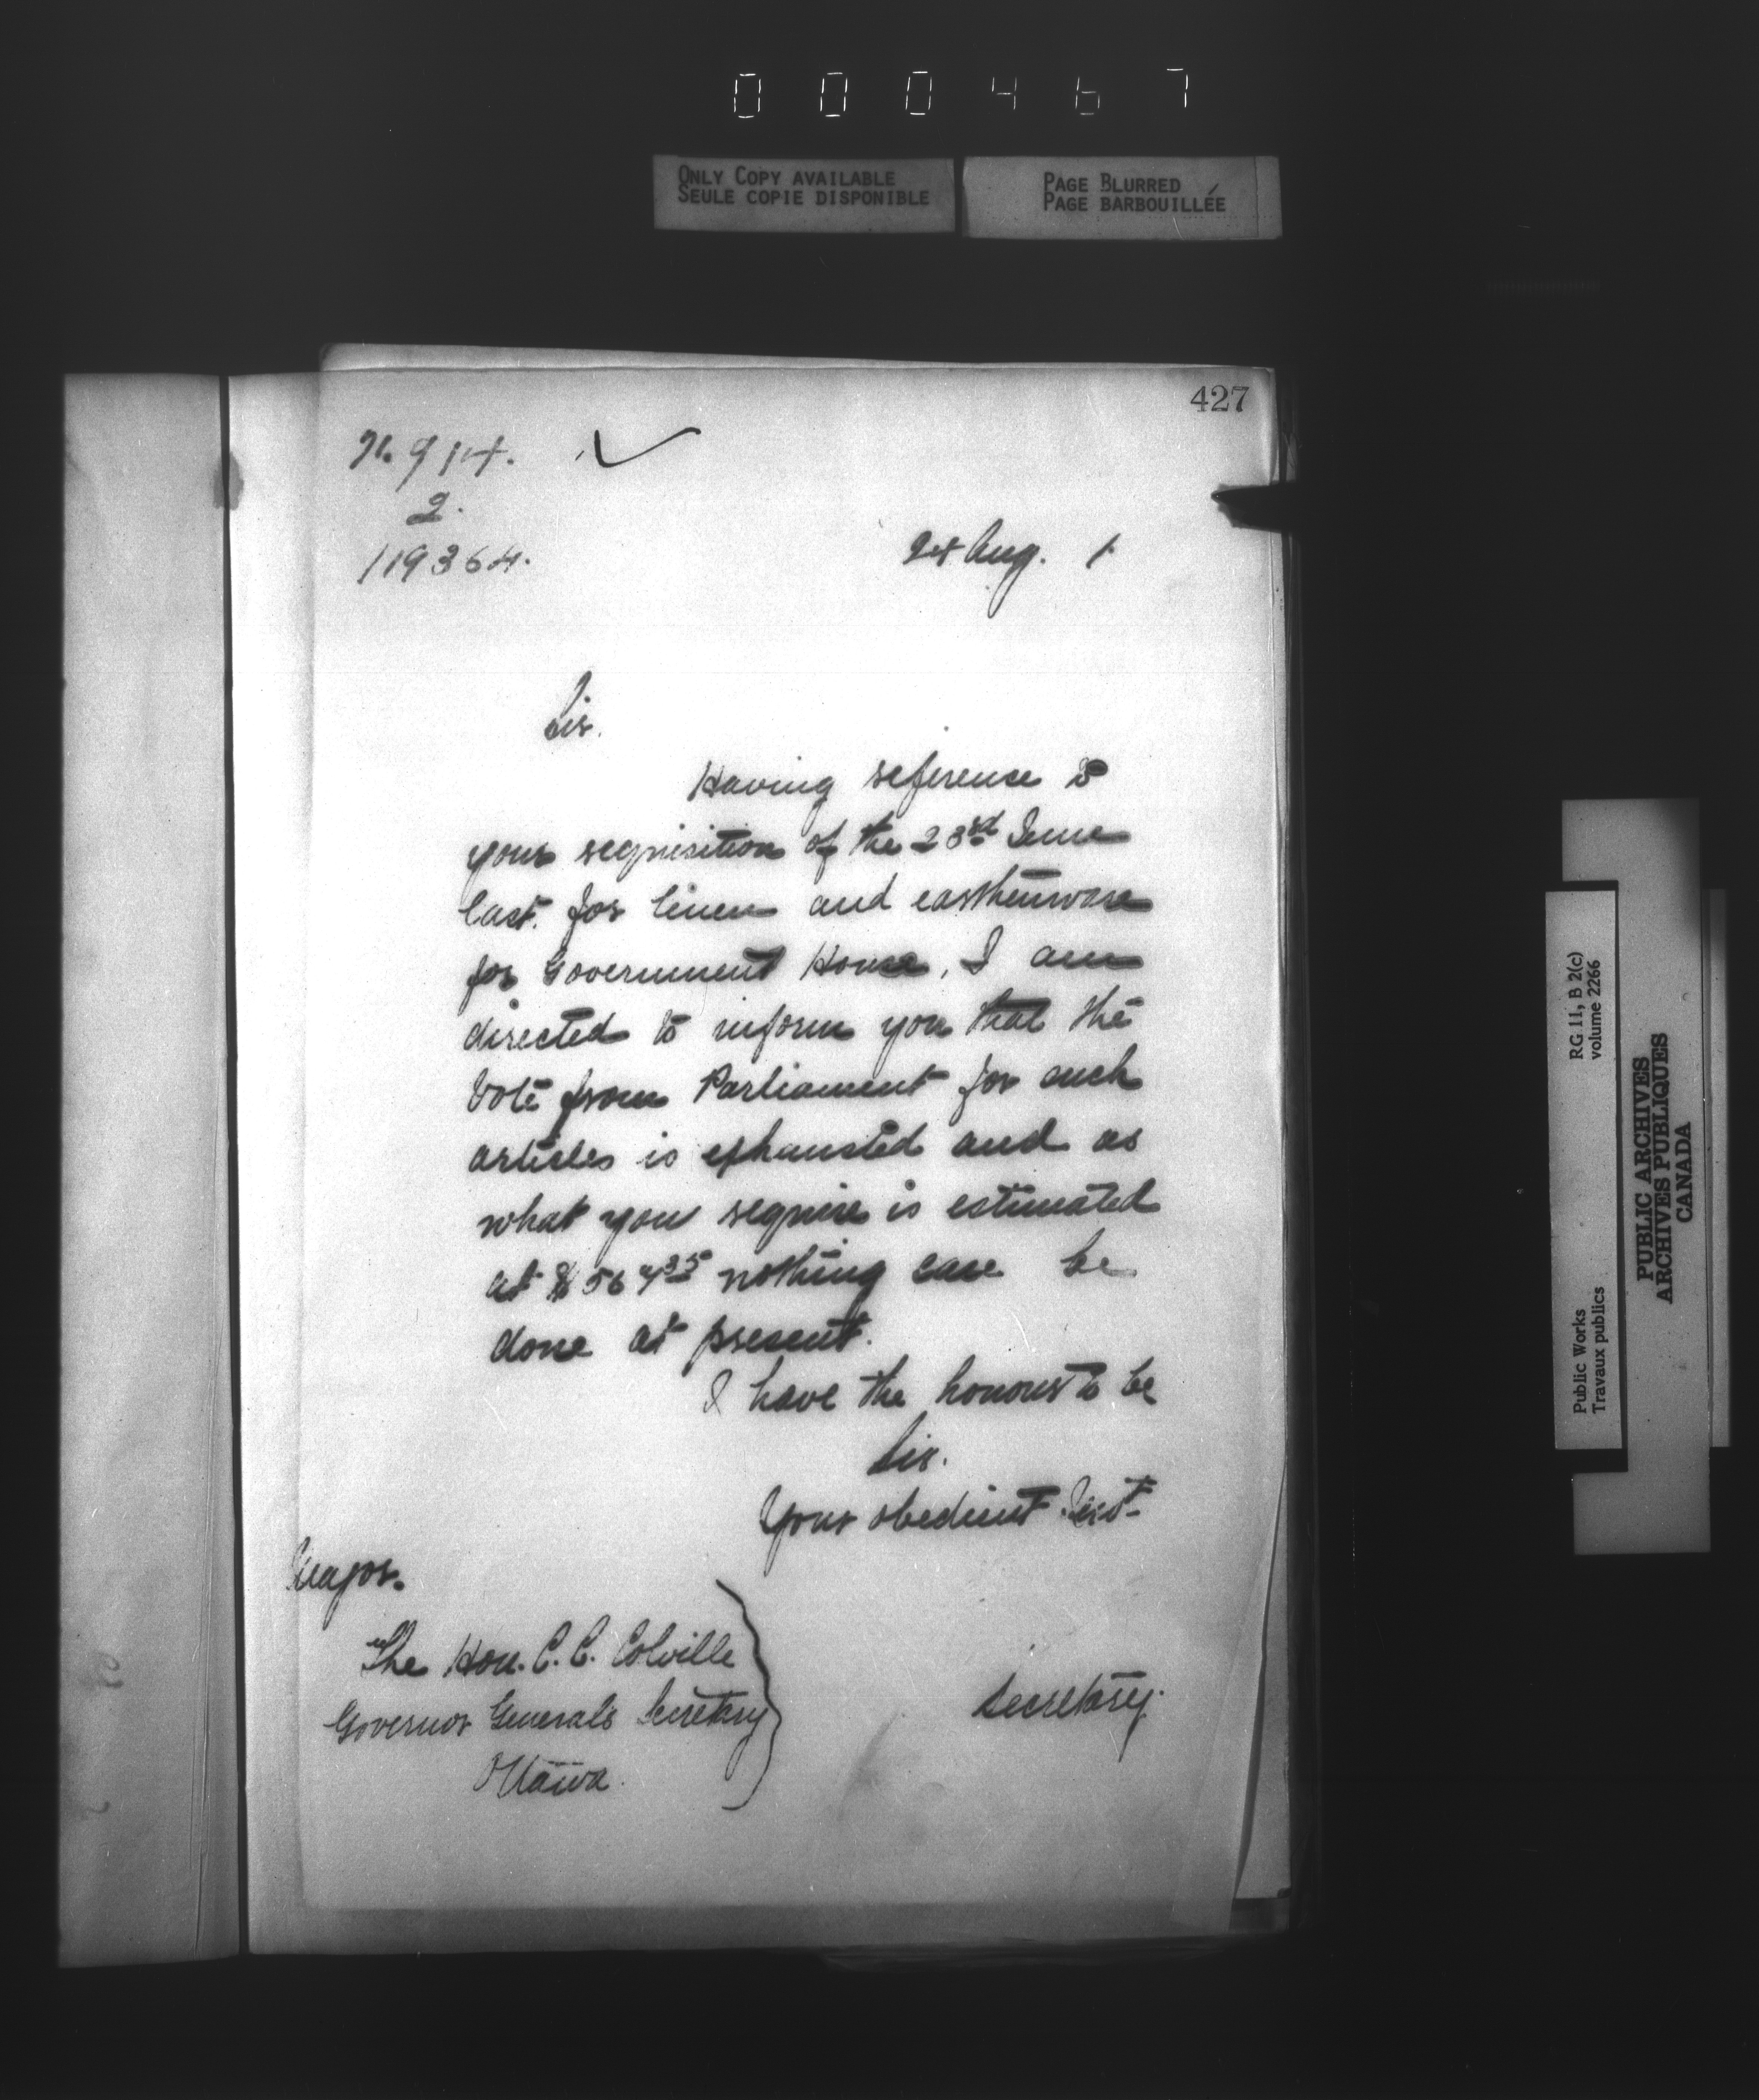 000467
ONLY COPY AVAILABLE
SEULE COPIE DISPONIBLE
PAGE BLURRED
PAGE BARBOUILLÉE
427
N. 914.
2.
119364.
24 Aug. 1
Sir.
Having reference to
your requisition of the 23rd June
last. for linen and earthenware
for Government House, I am
directed to inform you that the
Vote from Parliament for such
articles is exhausted and as
what you require is estimated
at $ 564 35 nothing can be
done at present.
I have the honour to be
Sir.
Your obedient Servt
Major.
The Hon. C. C. Colville
Governor Generals Secretary
Ottawa.
Secretary.
RG 11, B 2(c)
volume 2266
Public Works
Travaux publics
PUBLIC ARCHIVES
ARCHIVES PUBLIQUES
CANADA